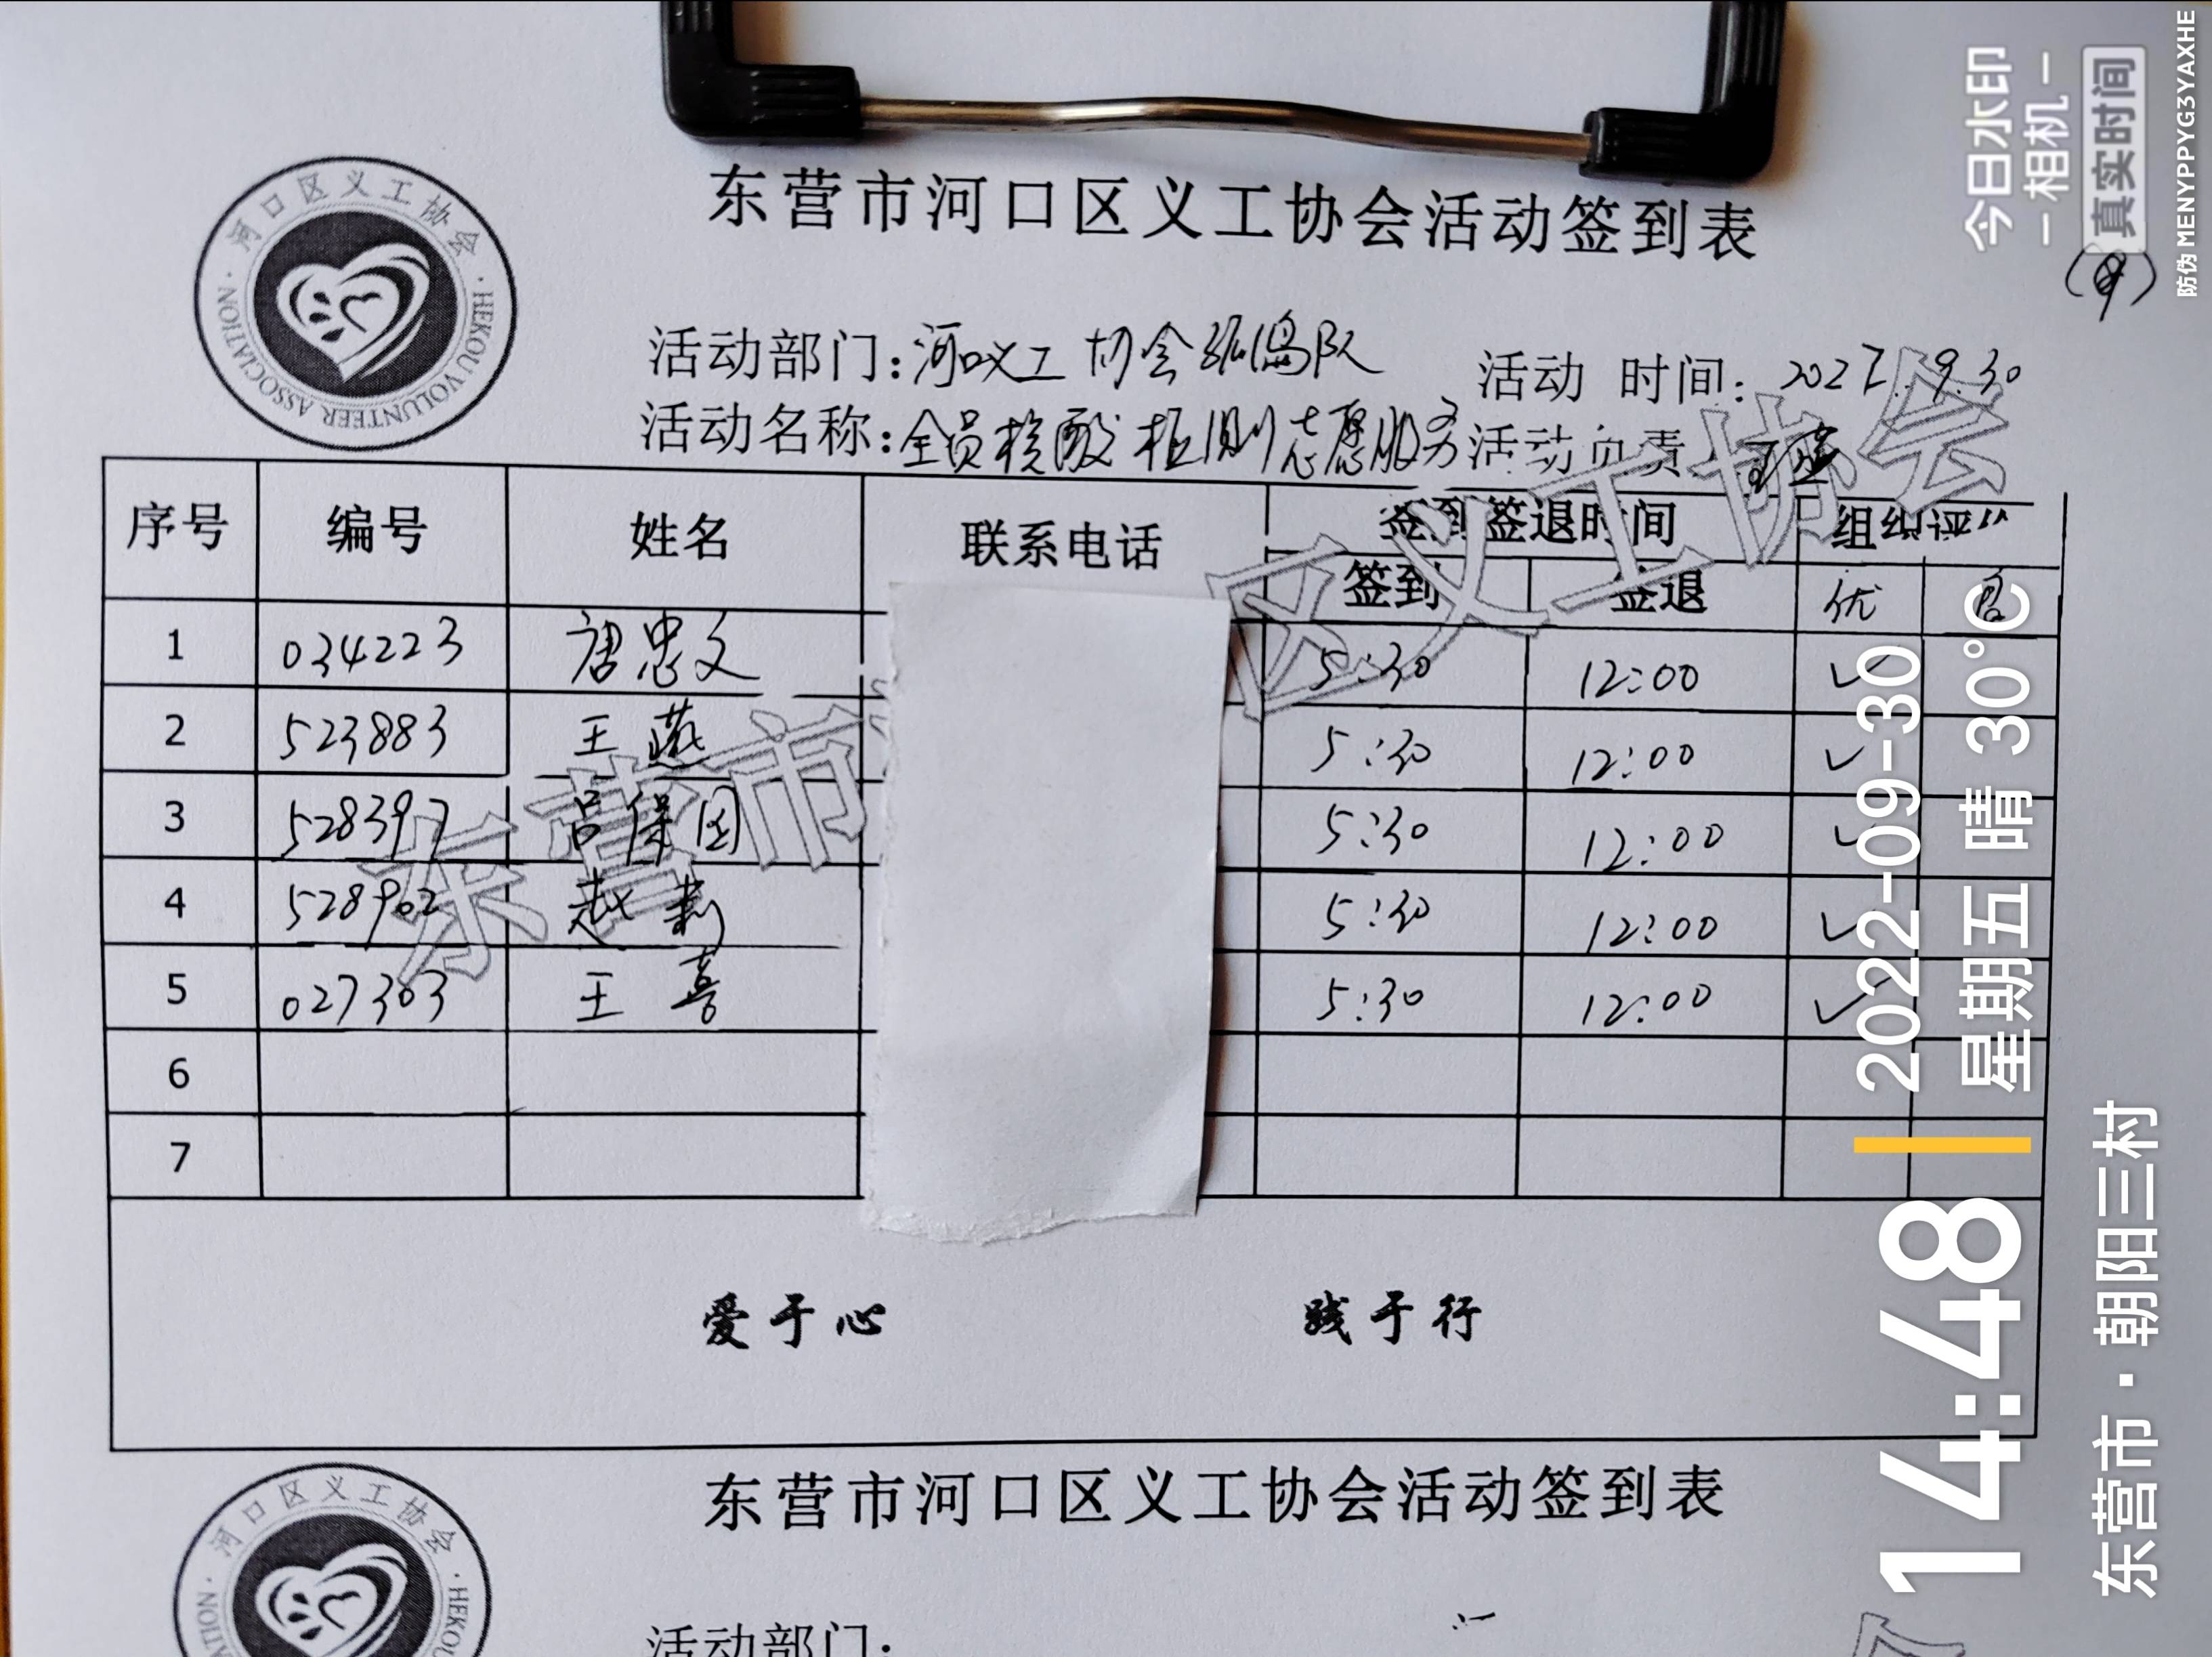 今日水印
-相机-
真实时间
防伪 MENYPPYG3YAXHE
河口区义工协会
HEKOU VOLUNTEER ASSOCIATION
东营市河口区义工协会活动签到表
活动部门：河口义工协会孤岛队 活动 时间：2022.9.30
活动名称：全员核酸检测志愿服务 活动负责
序号 编号 姓名 联系电话 签到签退时间 组织评价
签到 签退 优 否
1 034223 唐忠文 5:30 12:00 ✓
2 523883 王燕 5:30 12:00 ✓
3 528397 吕保国 5:30 12:00 ✓
4 528962 赵莉 5:30 12:00 ✓
5 027303 王喜 5:30 12:00 ✓
6
7
东营市 区义工协会
爱于心 践于行
14:48
2022-09-30
星期五 晴 30°C
东营市·朝阳三村
东营市河口区义工协会活动签到表
河口区义工协会
活动部门：